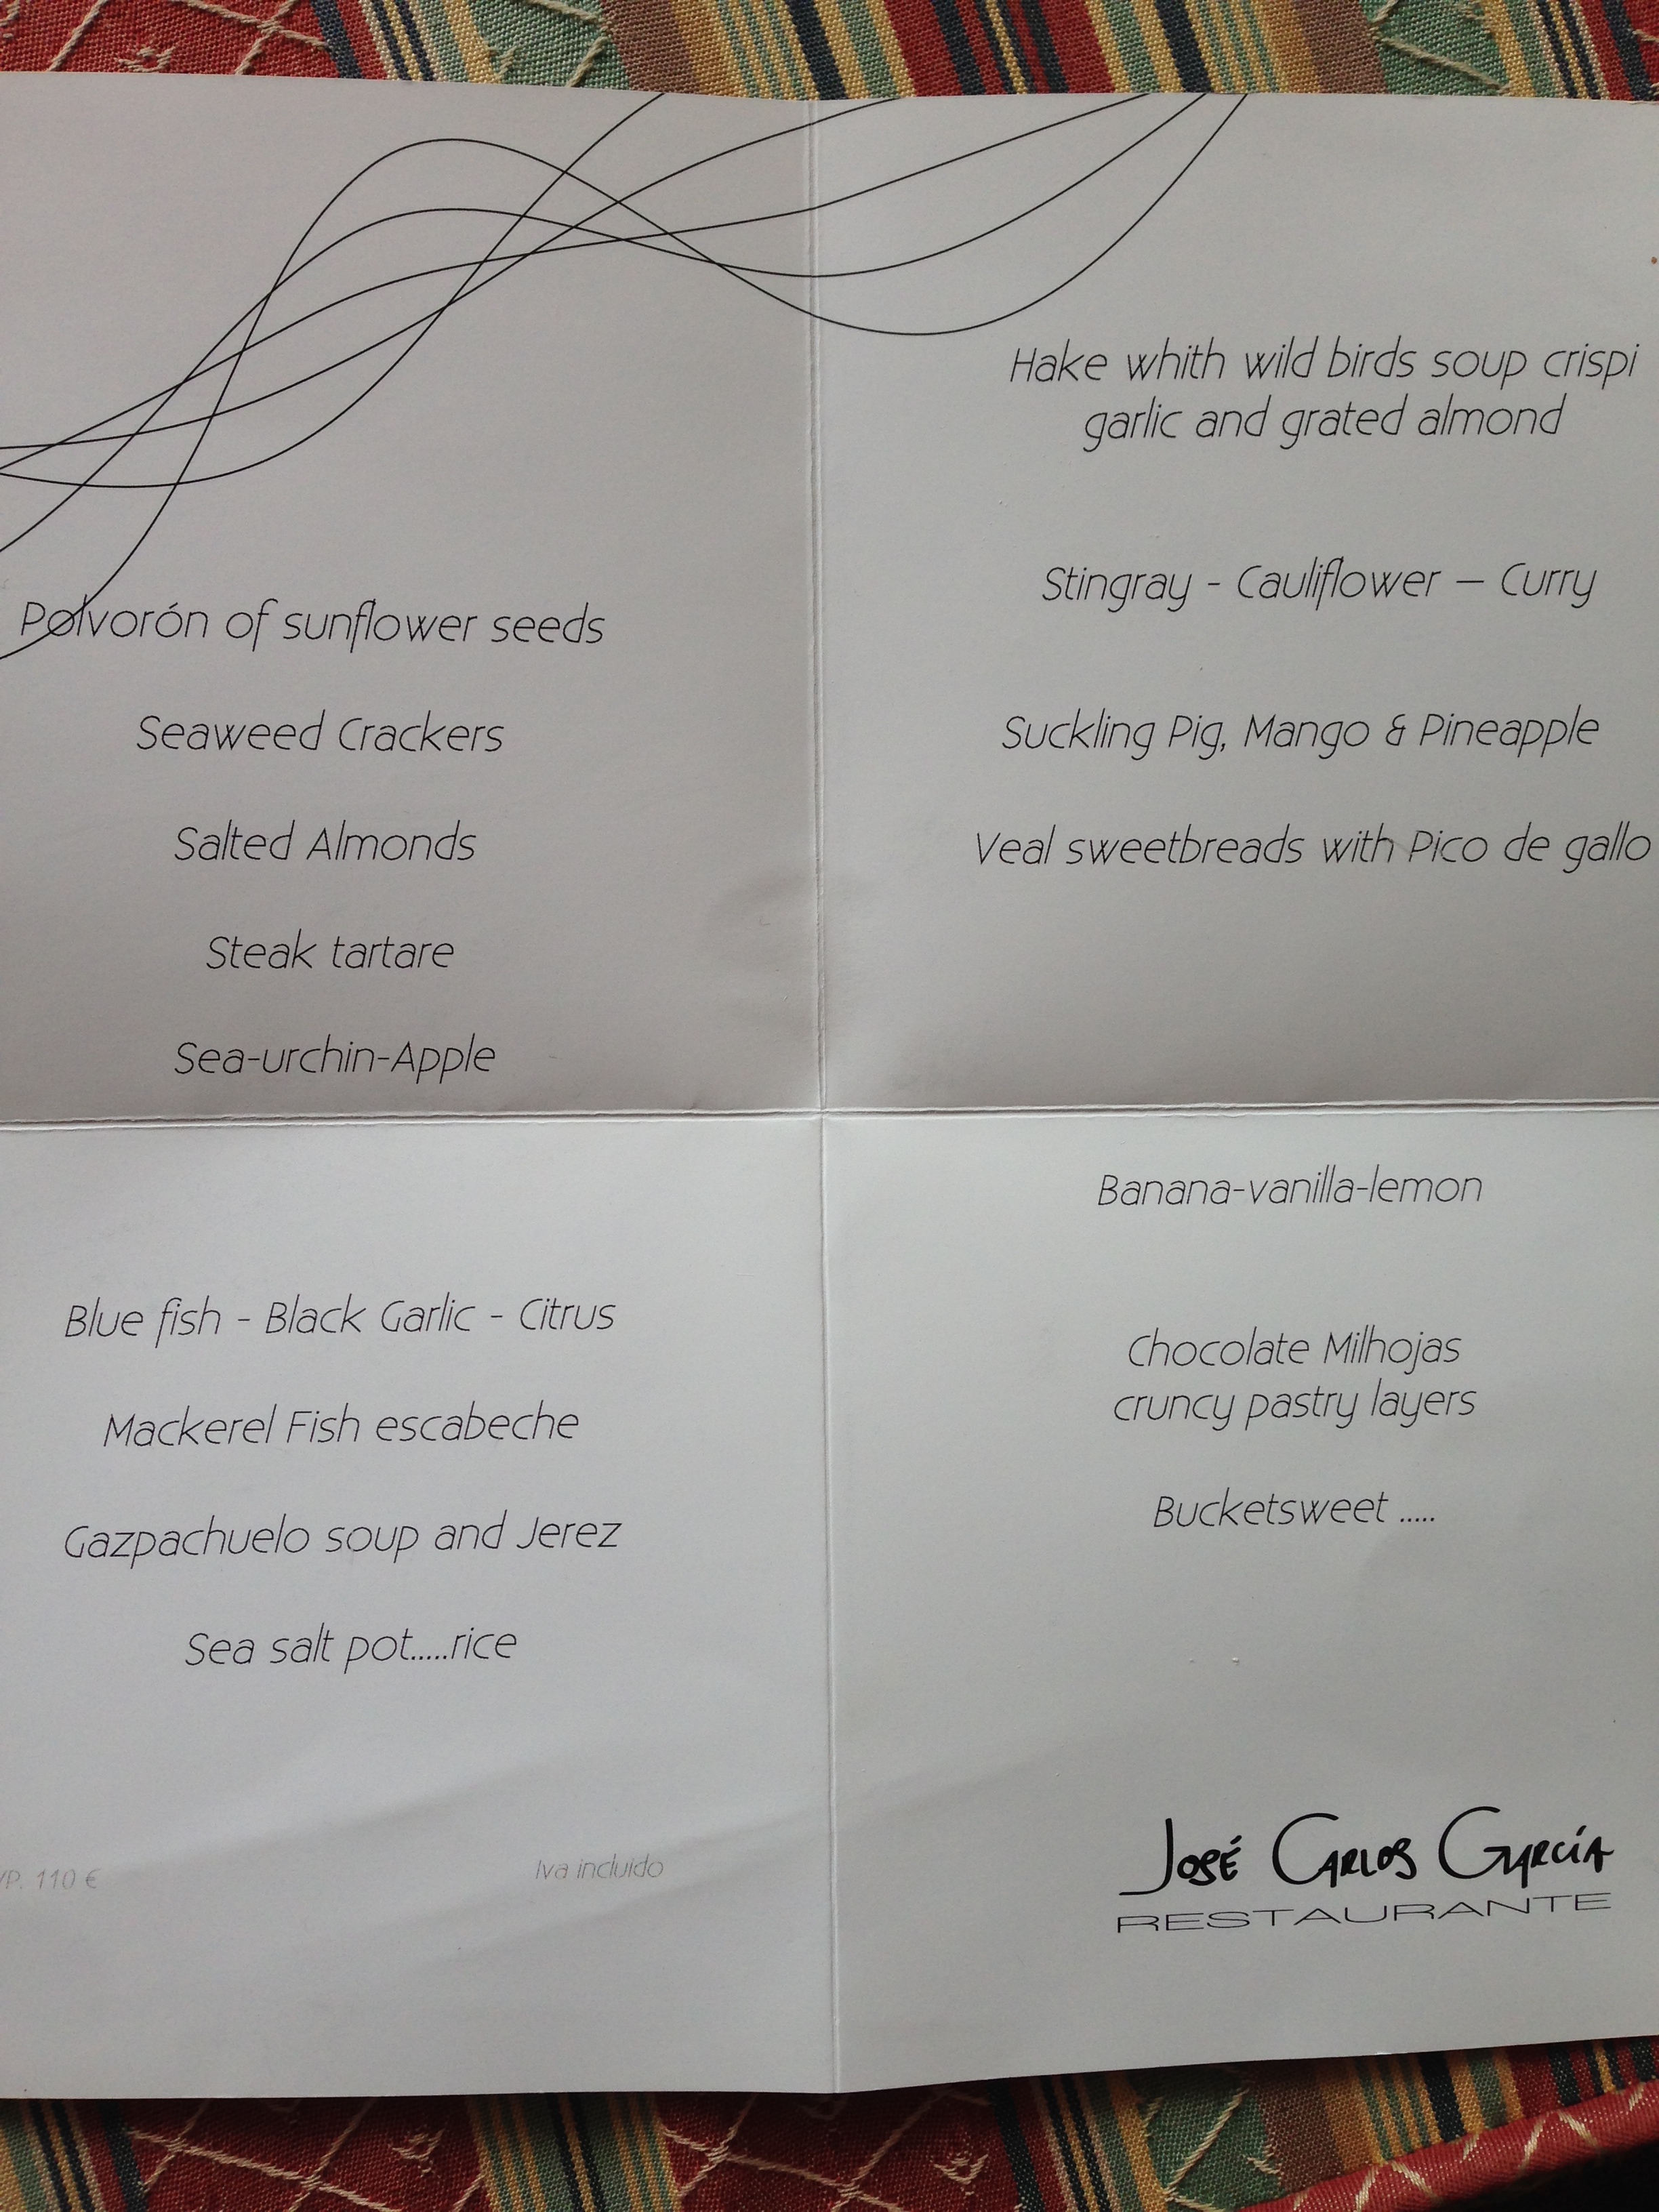 Polvorón of sunflower seeds
Seaweed Crackers
Salted Almonds
Steak tartare
Sea-urchin-Apple
Blue fish - Black Garlic - Citrus
Mackerel Fish escabeche
Gazpachuelo soup and Jerez
Sea salt pot.....rice
VP. 110 €
Iva incluido
Hake whith wild birds soup crispi
garlic and grated almond
Stingray - Cauliflower – Curry
Suckling Pig, Mango & Pineapple
Veal sweetbreads with Pico de gallo
Banana-vanilla-lemon
Chocolate Milhojas
cruncy pastry layers
Bucketsweet .....
José Carlos García
RESTAURANTE